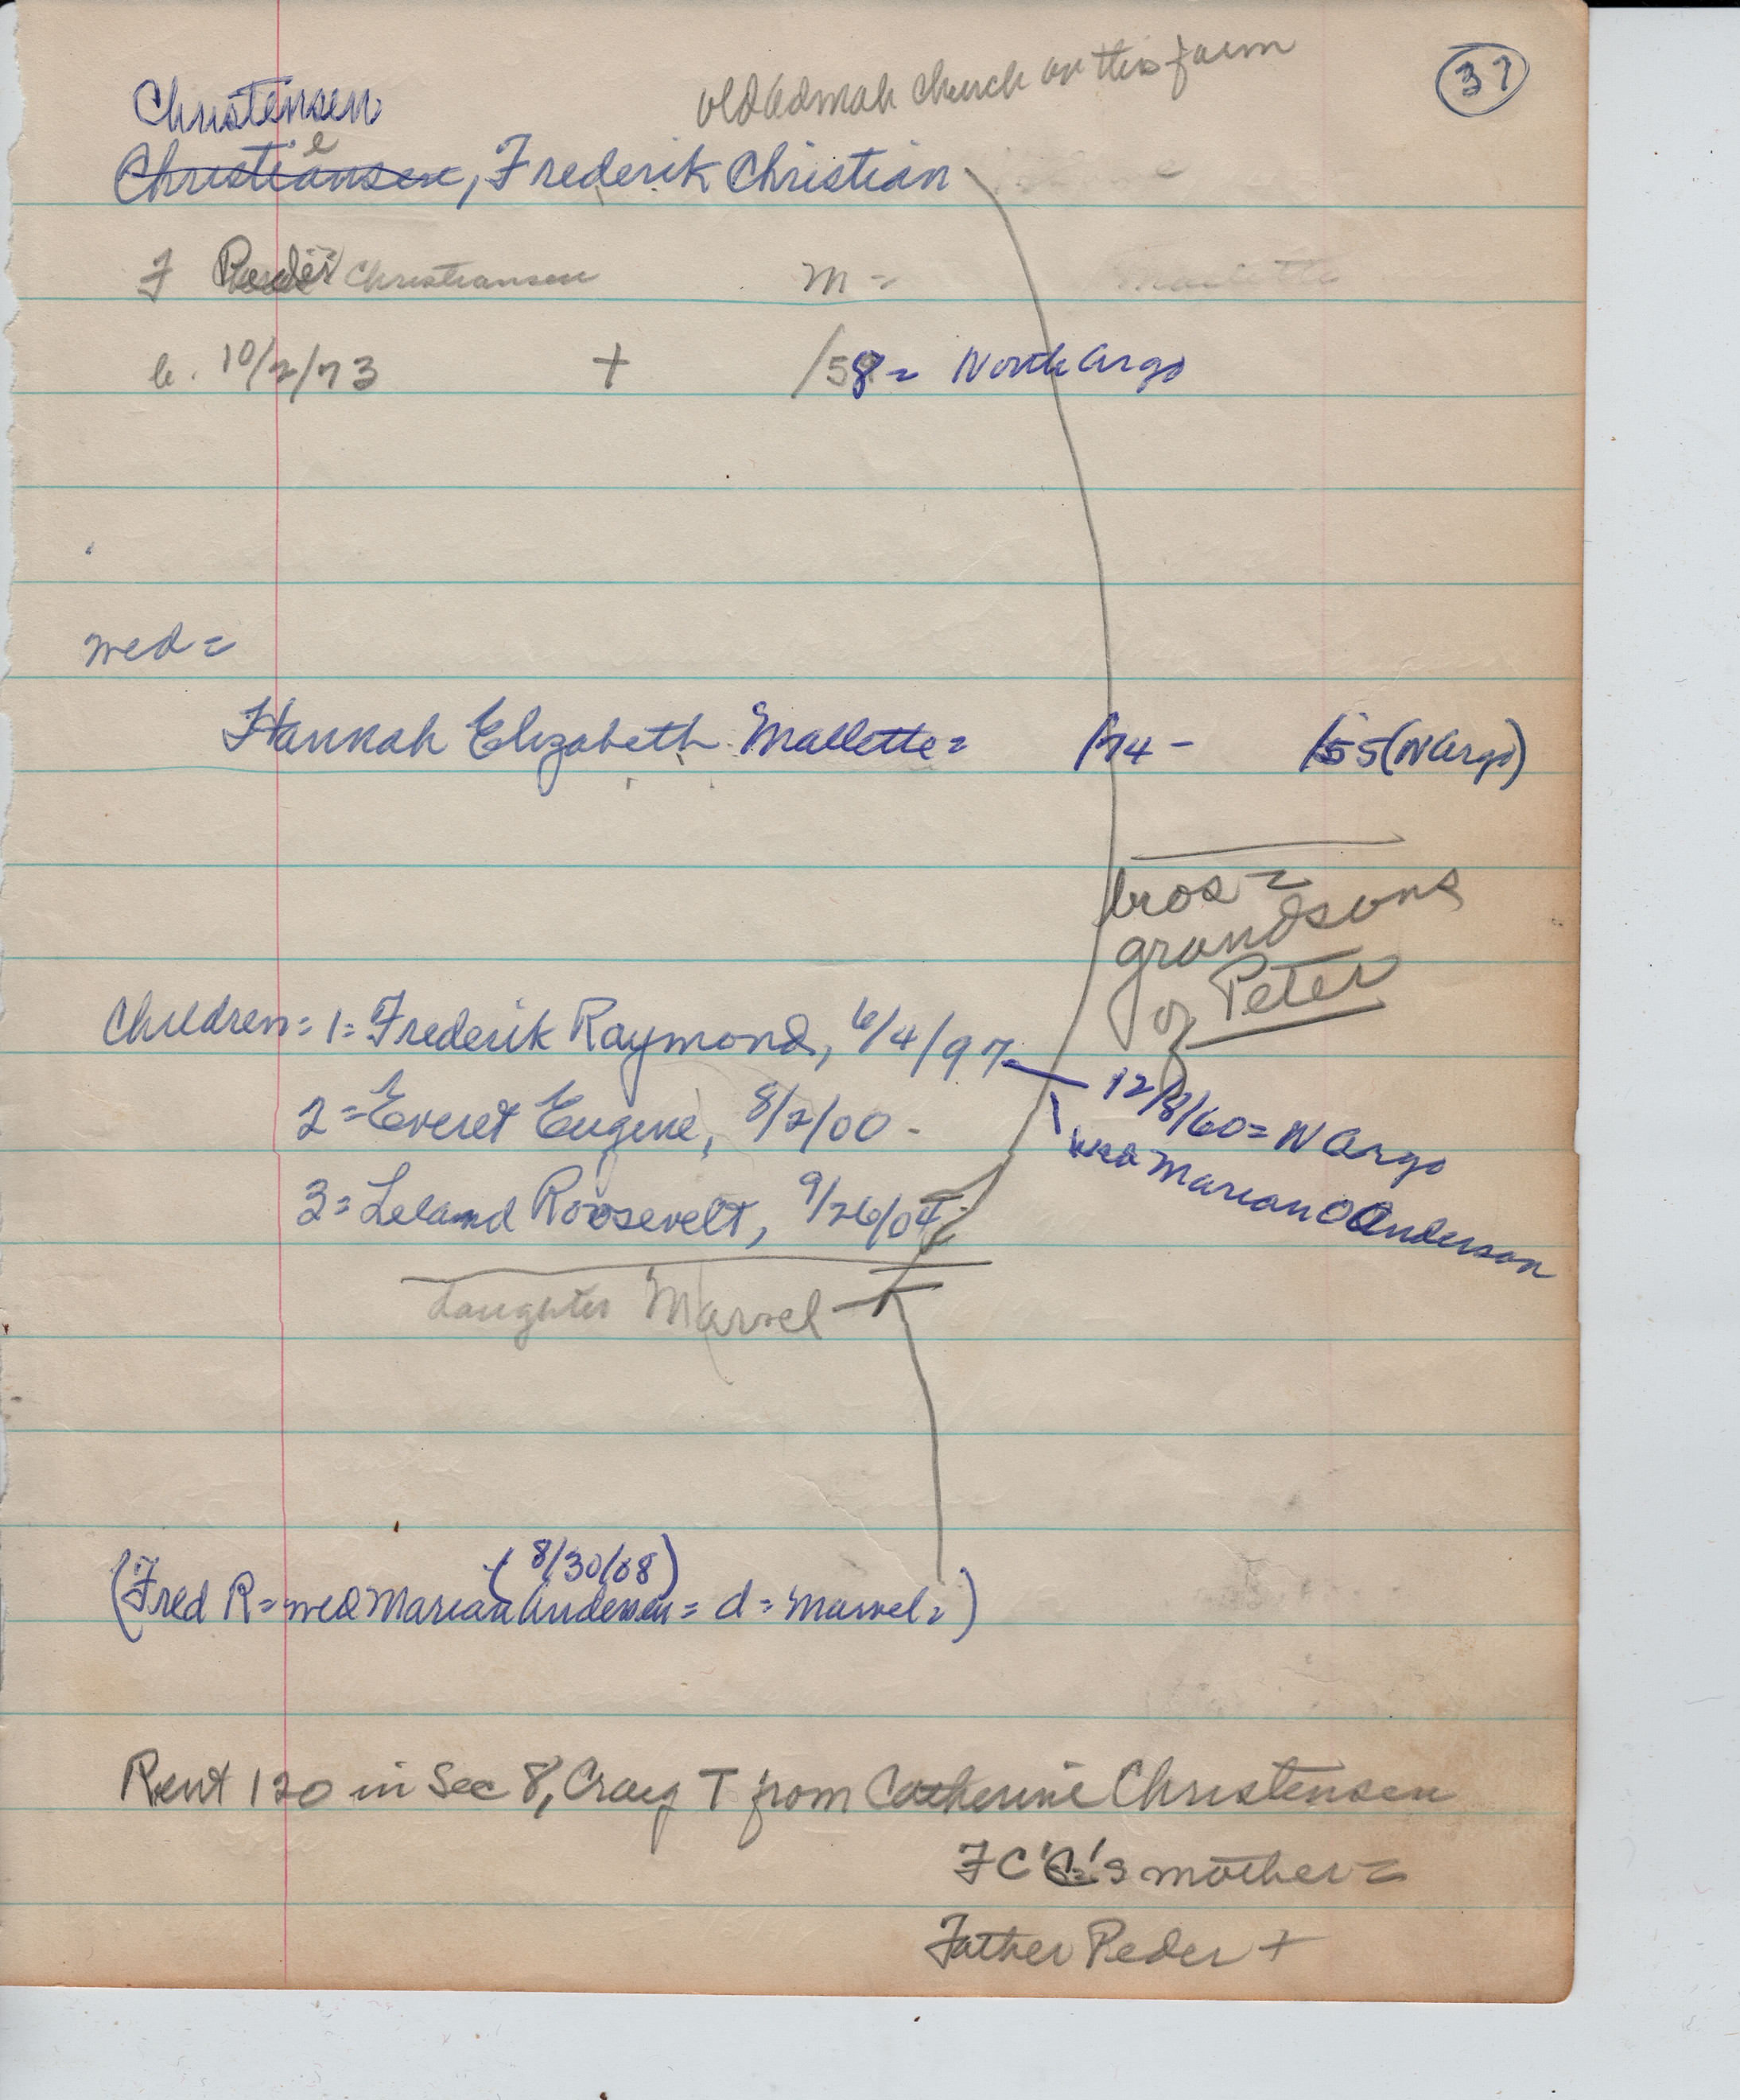 old Admah church on this farm
37
Christensen
e
Christiansen, Frederik Christian
F Peder Christiansen m =
b. 10/2/73 + /58 = North Argo
wed =
Hannah Elizabeth Mallette = /74 - /55 (N Argo)
bros =
grandsons
of Peter
Children = 1 = Frederik Raymond, 6/4/97 — 12/8/60 = N Argo
wed Marian O Anderson
2 = Everet Eugene, 8/2/00 -
3 = Leland Roosevelt, 9/26/04
daughter Marvel
(8/30/08)
(Fred R = wed Marian Andersen = d = Marvel = )
Rent 120 in Sec 8, Craig T from Catherine Christensen
F C C's mother =
Father Peder +